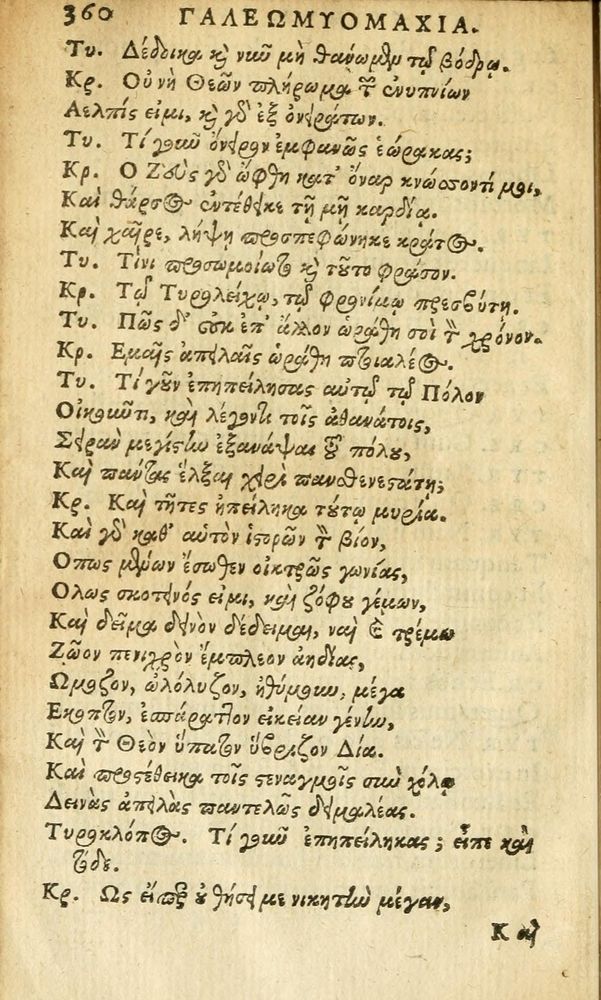 360 ΓΑΛΕΩΜΥΟΜΑΧΙΑ.
Τυ. Δέδοικα καὶ νιῦ μὴ θάνωμεν τῷ βόθρῳ.
Κρ. Οὐ νὴ Θεῶν πλήρωμα τῶν ἐνυπνίων
Αελπίς εἰμι, καὶ γὸ ἐξ ὀνειράτων.
Τυ. Τί γοιῦ ὄνειρον ἐμφανῶς ἑώρακας;
Κρ. Ο Ζεὺς γὸ ὤφθη κατ' ὄναρ κνώσσοντί μοι,
Καὶ θάρσος ἐντέθεικε τῇ μῇ καρδίᾳ.
Καὶ χαῖρε, λήψῃ προσπεφώνηκε κράτος.
Τυ. Τίνι προσωμοίωτο καὶ τοῦτο φράσον.
Κρ. Τῷ Τυρολείχῳ, τῷ φρονίμῳ πρεσβύτῃ.
Τυ. Πῶς δ' οὐκ ἐπ' ἄλλον ὡράθη σοὶ τὸν χρόνον.
Κρ. Εμαῖς ἀπειλαῖς ὡράθη πτοιαλέος.
Τυ. Τί γοῦν ἐπηπείλησας αὐτῷ τῷ Πόλον
Οἰκοιῦτι, καὶ λέγοντι τοῖς ἀθανάτοις,
Σειρὰν μεγίστιω ἐξανάψαι τοῦ πόλου,
Καὶ πάντας ἕλξαι χειρὶ πανσθενεστάτῃ;
Κρ. Καὶ τῆτες ἠπείληκα τούτῳ μυρία.
Καὶ γὸ καθ' αὑτὸν ἱστορῶν τὸν βίον,
Οπως μένων ἔσωθεν οἰκτρῶς γωνίας,
Ολως σκοτεινός εἰμι, καὶ ζόφου γέμων,
Καὶ δεῖμα δεινὸν δέδειμαι, ναὶ καὶ τρέμω
Ζῶον πενιχρὸν ἔμπλεον ἀηδίας,
Ωμωζον, ὠλόλυζον, ἠθύμοιω, μέγα
Εκοπτον, ἐσπάραττον εἰκείαν γένιω,
Καὶ τὸν Θεὸν ὕπατον ὕβριζον Δία.
Καὶ προσέθεικα τοῖς στεναγμοῖς σιω χόλῳ
Δεινὰς ἀπειλὰς παντελῶς δειμαλέας.
Τυροκλόπος. Τί γοιῦ ἐπηπείληκας; εἶπε καὶ
τόδε.
Κρ. Ως εἴπερ οὐ θήσει με νικητιὼ μέγαν,
Καὶ